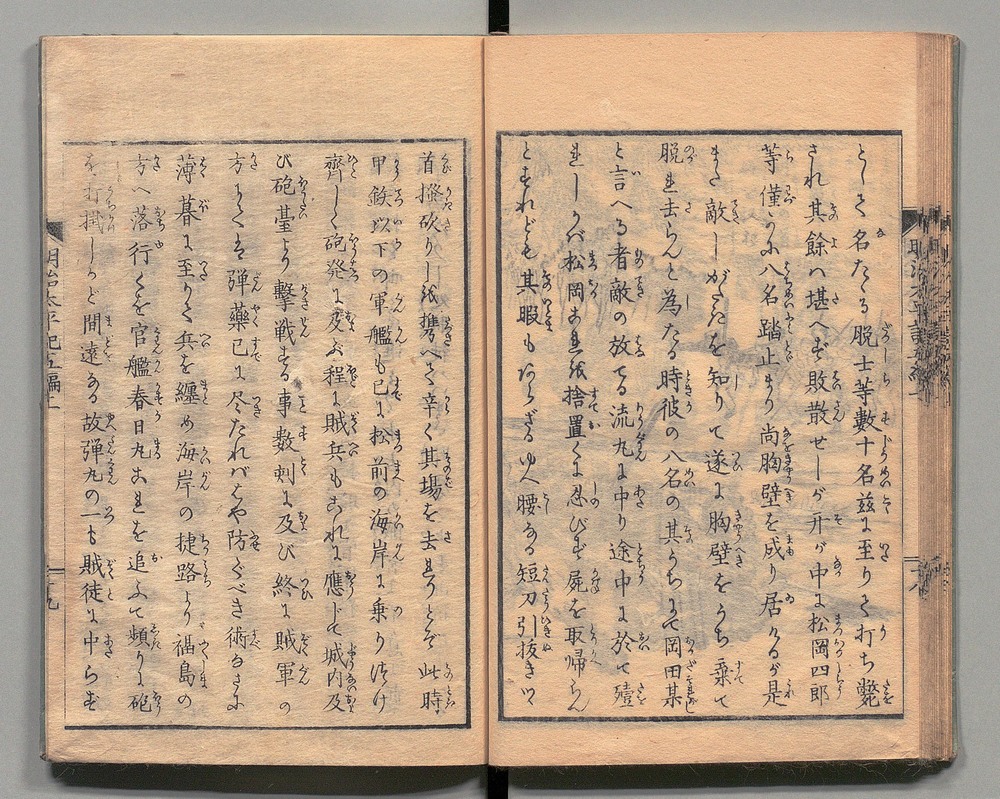 として名たゝる脱士等數十名玆に至りて打ち斃
され其餘ハ堪へず敗散せしが开が中に松岡四郎
等僅かに八名踏止まり尚胸壁を成り居たるが是
また敵しがたきを知りて遂に胸壁をうち棄て
脱れ去らんと為たる時彼の八名の其うちにて岡田某
と言へる者敵の放てる流丸に中り途中に於て殪
れしかバ松岡これを捨置くに忍びず屍を取帰らん
とすれども其暇もあらざるゆゑ腰なる短刀引抜きツ
首掻砍りし紙携へて辛く其場を去りしとぞ此時
甲鉄以下の軍艦も已に松前の海岸に乗りつけ
齊しく砲発に及ぶ程に賊兵もこれに應じて城内及
び砲䑓より撃戦する事数刻に及び終に賊軍の
方にてハ弾藥已に尽たればはや防ぐべき術なきに
薄暮に至りて兵を纏め海岸の捷路より福島の
方へ落行くを官艦春日丸これを追ふて頻りに砲
を打掛しかど間遠なる故弾丸の一も賊徒に中らず
明治太平記五編十一
十九